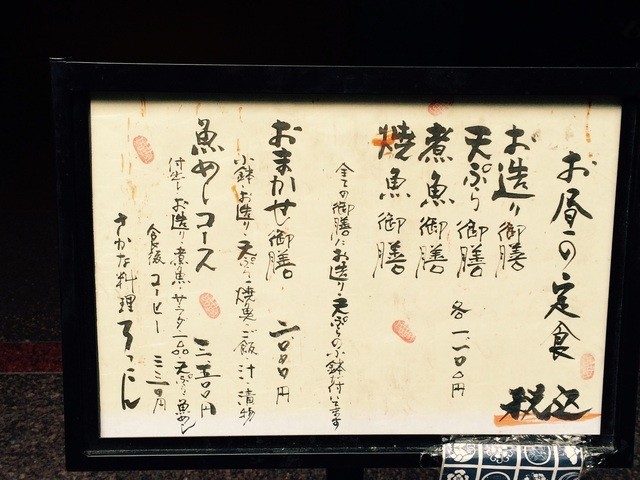 お昼の定食
税込
お造り御膳
天ぷら御膳
煮魚御膳
焼魚御膳
各一、一〇〇円
全ての御膳にお造り・天ぷらの小鉢付いてます
おまかせ御膳
二〇〇〇円
小鉢・お造り・天ぷら・焼魚・ご飯・汁・漬物
魚めしコース
三三〇〇円
付出し・お造り・煮魚・サラダ・一品・天ぷら・魚めし
食後コーヒー
三三〇円
さかな料理